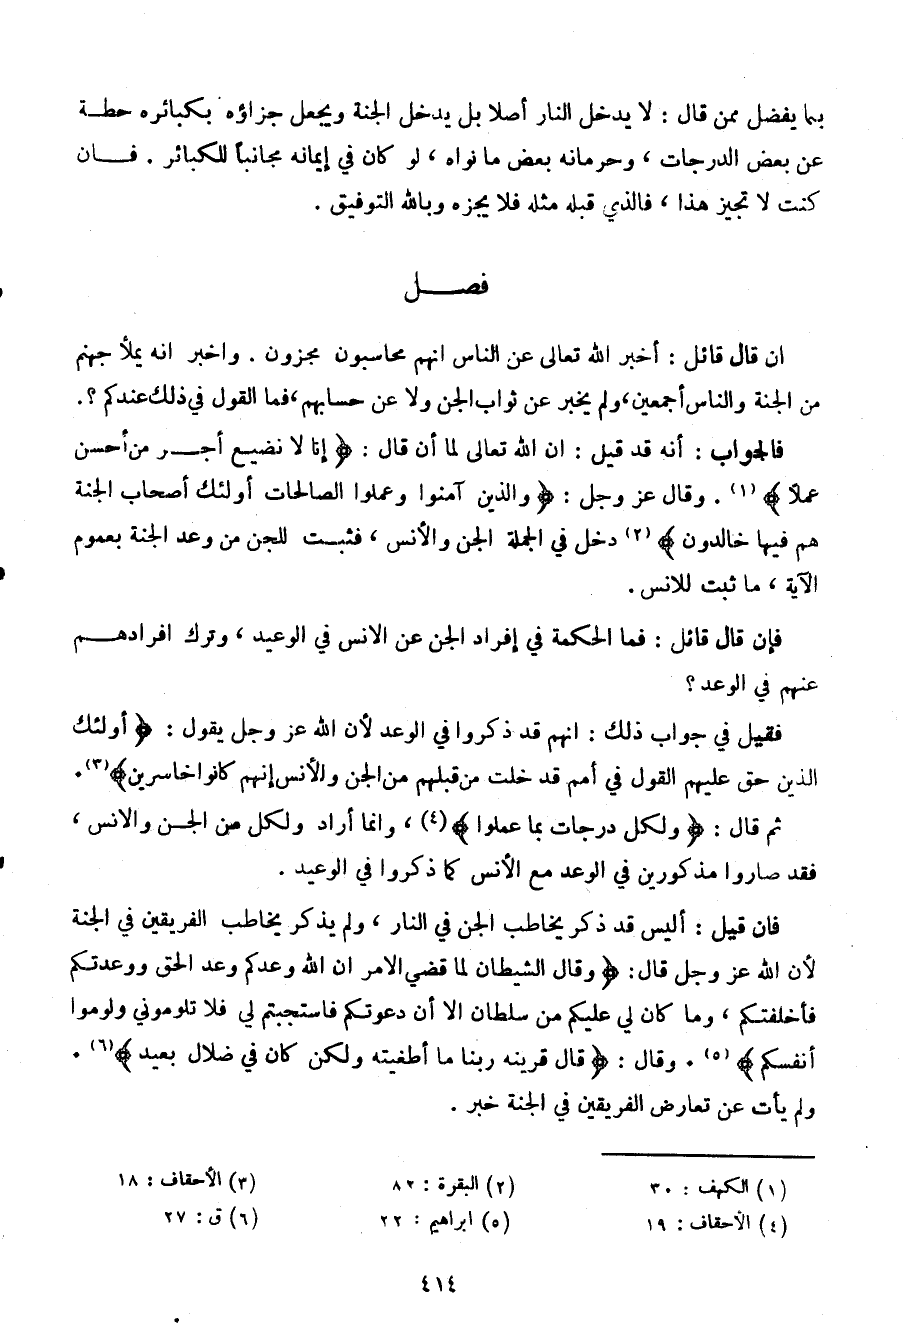 بما يفضل ممن قال : لا يدخل النار أصلا بل يدخل الجنة ويجعل جزاؤه بكبائره حطة
عن بعض الدرجات ، وحرمانه بعض ما نواه ، لو كان في إيمانه مجانباً للكبائر . فان
كنت لا تجيز هذا ، فالذي قبله مثله فلا يجزه وبالله التوفيق .
فصل
ان قال قائل : أخبر الله تعالى عن الناس انهم محاسبون مجزون . واخبر انه يملأ جهنم
من الجنة والناس أجمعين ، ولم يخبر عن ثواب الجن ولا عن حسابهم ، فما القول في ذلك عندكم ؟ .
فالجواب : أنه قد قيل : ان الله تعالى لما أن قال : ﴿ إنا لا نضيع أجر من أحسن
عملاً ﴾ (١) . وقال عز وجل : ﴿ والذين آمنوا وعملوا الصالحات أولئك أصحاب الجنة
هم فيها خالدون ﴾ (٢) دخل في الجملة الجن والأنس ، فثبت للجن من وعد الجنة بعموم
الآية ، ما ثبت للانس .
فإن قال قائل : فما الحكمة في إفراد الجن عن الانس في الوعيد ، وترك افرادهم
عنهم في الوعد ؟
فقيل في جواب ذلك : انهم قد ذكروا في الوعد لأن الله عز وجل يقول : ﴿ أولئك
الذين حق عليهم القول في أمم قد خلت من قبلهم من الجن والأنس إنهم كانوا خاسرين ﴾ (٣) .
ثم قال : ﴿ ولكل درجات بما عملوا ﴾ (٤) ، وانما أراد ولكل من الجن والانس ،
فقد صاروا مذكورين في الوعد مع الأنس كما ذكروا في الوعيد .
فان قيل : أليس قد ذكر يخاطب الجن في النار ، ولم يذكر يخاطب الفريقين في الجنة
لأن الله عز وجل قال : ﴿ وقال الشيطان لما قضي الامر ان الله وعدكم وعد الحق ووعدتكم
فأخلفتكم ، وما كان لي عليكم من سلطان الا أن دعوتكم فاستجبتم لي فلا تلوموني ولوموا
أنفسكم ﴾ (٥) . وقال : ﴿ قال قرينه ربنا ما أطغيته ولكن كان في ضلال بعيد ﴾ (٦) .
ولم يأت عن تعارض الفريقين في الجنة خبر .
(١) الكهف : ٣٠ (٢) البقرة : ٨٢ (٣) الأحقاف : ١٨
(٤) الأحقاف : ١٩ (٥) ابراهيم : ٢٢ (٦) ق : ٢٧
٤١٤